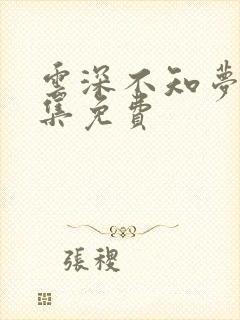 雲深不知夢
集免費
張稷